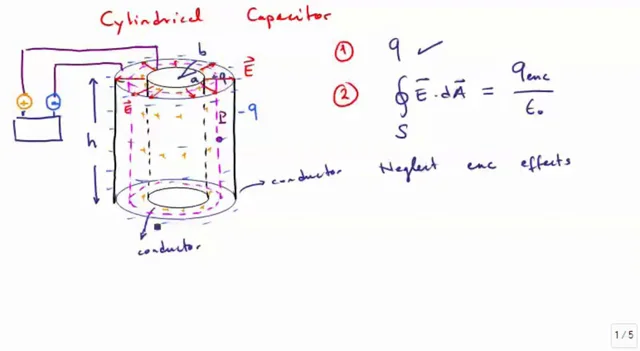 Cylindrical Capacitor
b
a
+q
E
E
P
-q
h
+
-
conductor
conductor
① q ✓
② ∮ E⃗·dA⃗ = qenc/ε₀
S
Neglect enc effects
1/5